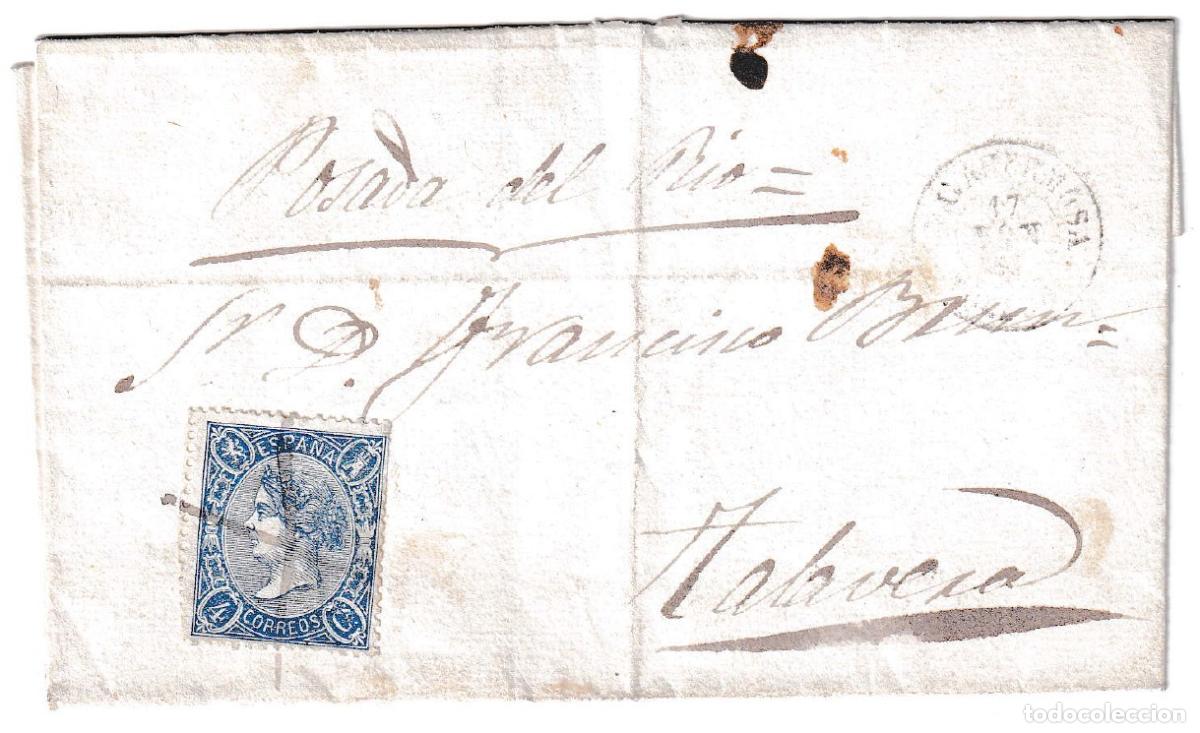 Posada del Rio =
Sr. D. Francisco
Talavera
ESPAÑA
4 CORREOS Cs
17
todocoleccion